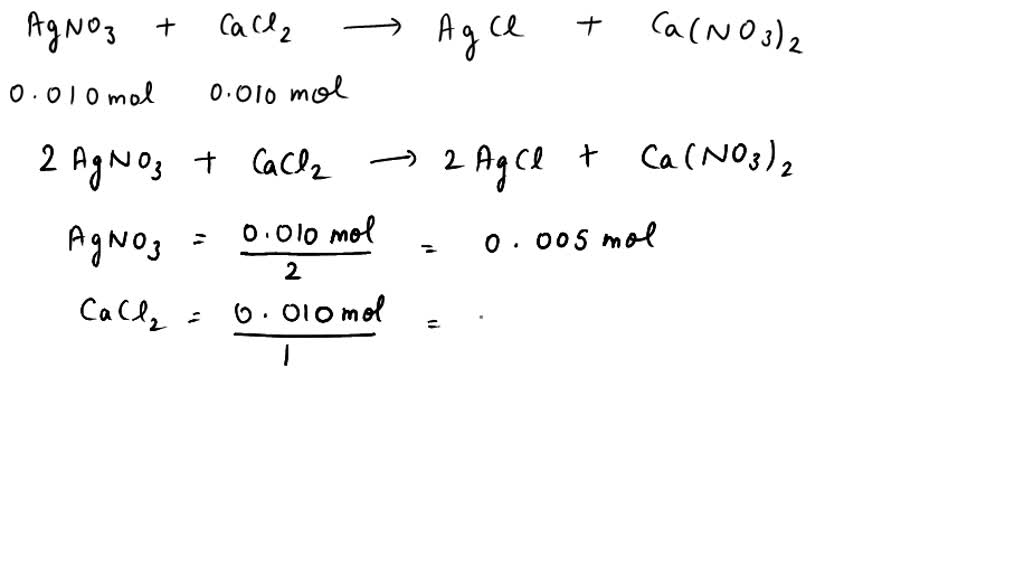 AgNO₃ + CaCl₂ ⟶ AgCl + Ca(NO₃)₂
0.010 mol 0.010 mol
2 AgNO₃ + CaCl₂ ⟶ 2 AgCl + Ca(NO₃)₂
AgNO₃ = 0.010 mol / 2 = 0.005 mol
CaCl₂ = 0.010 mol / 1 =